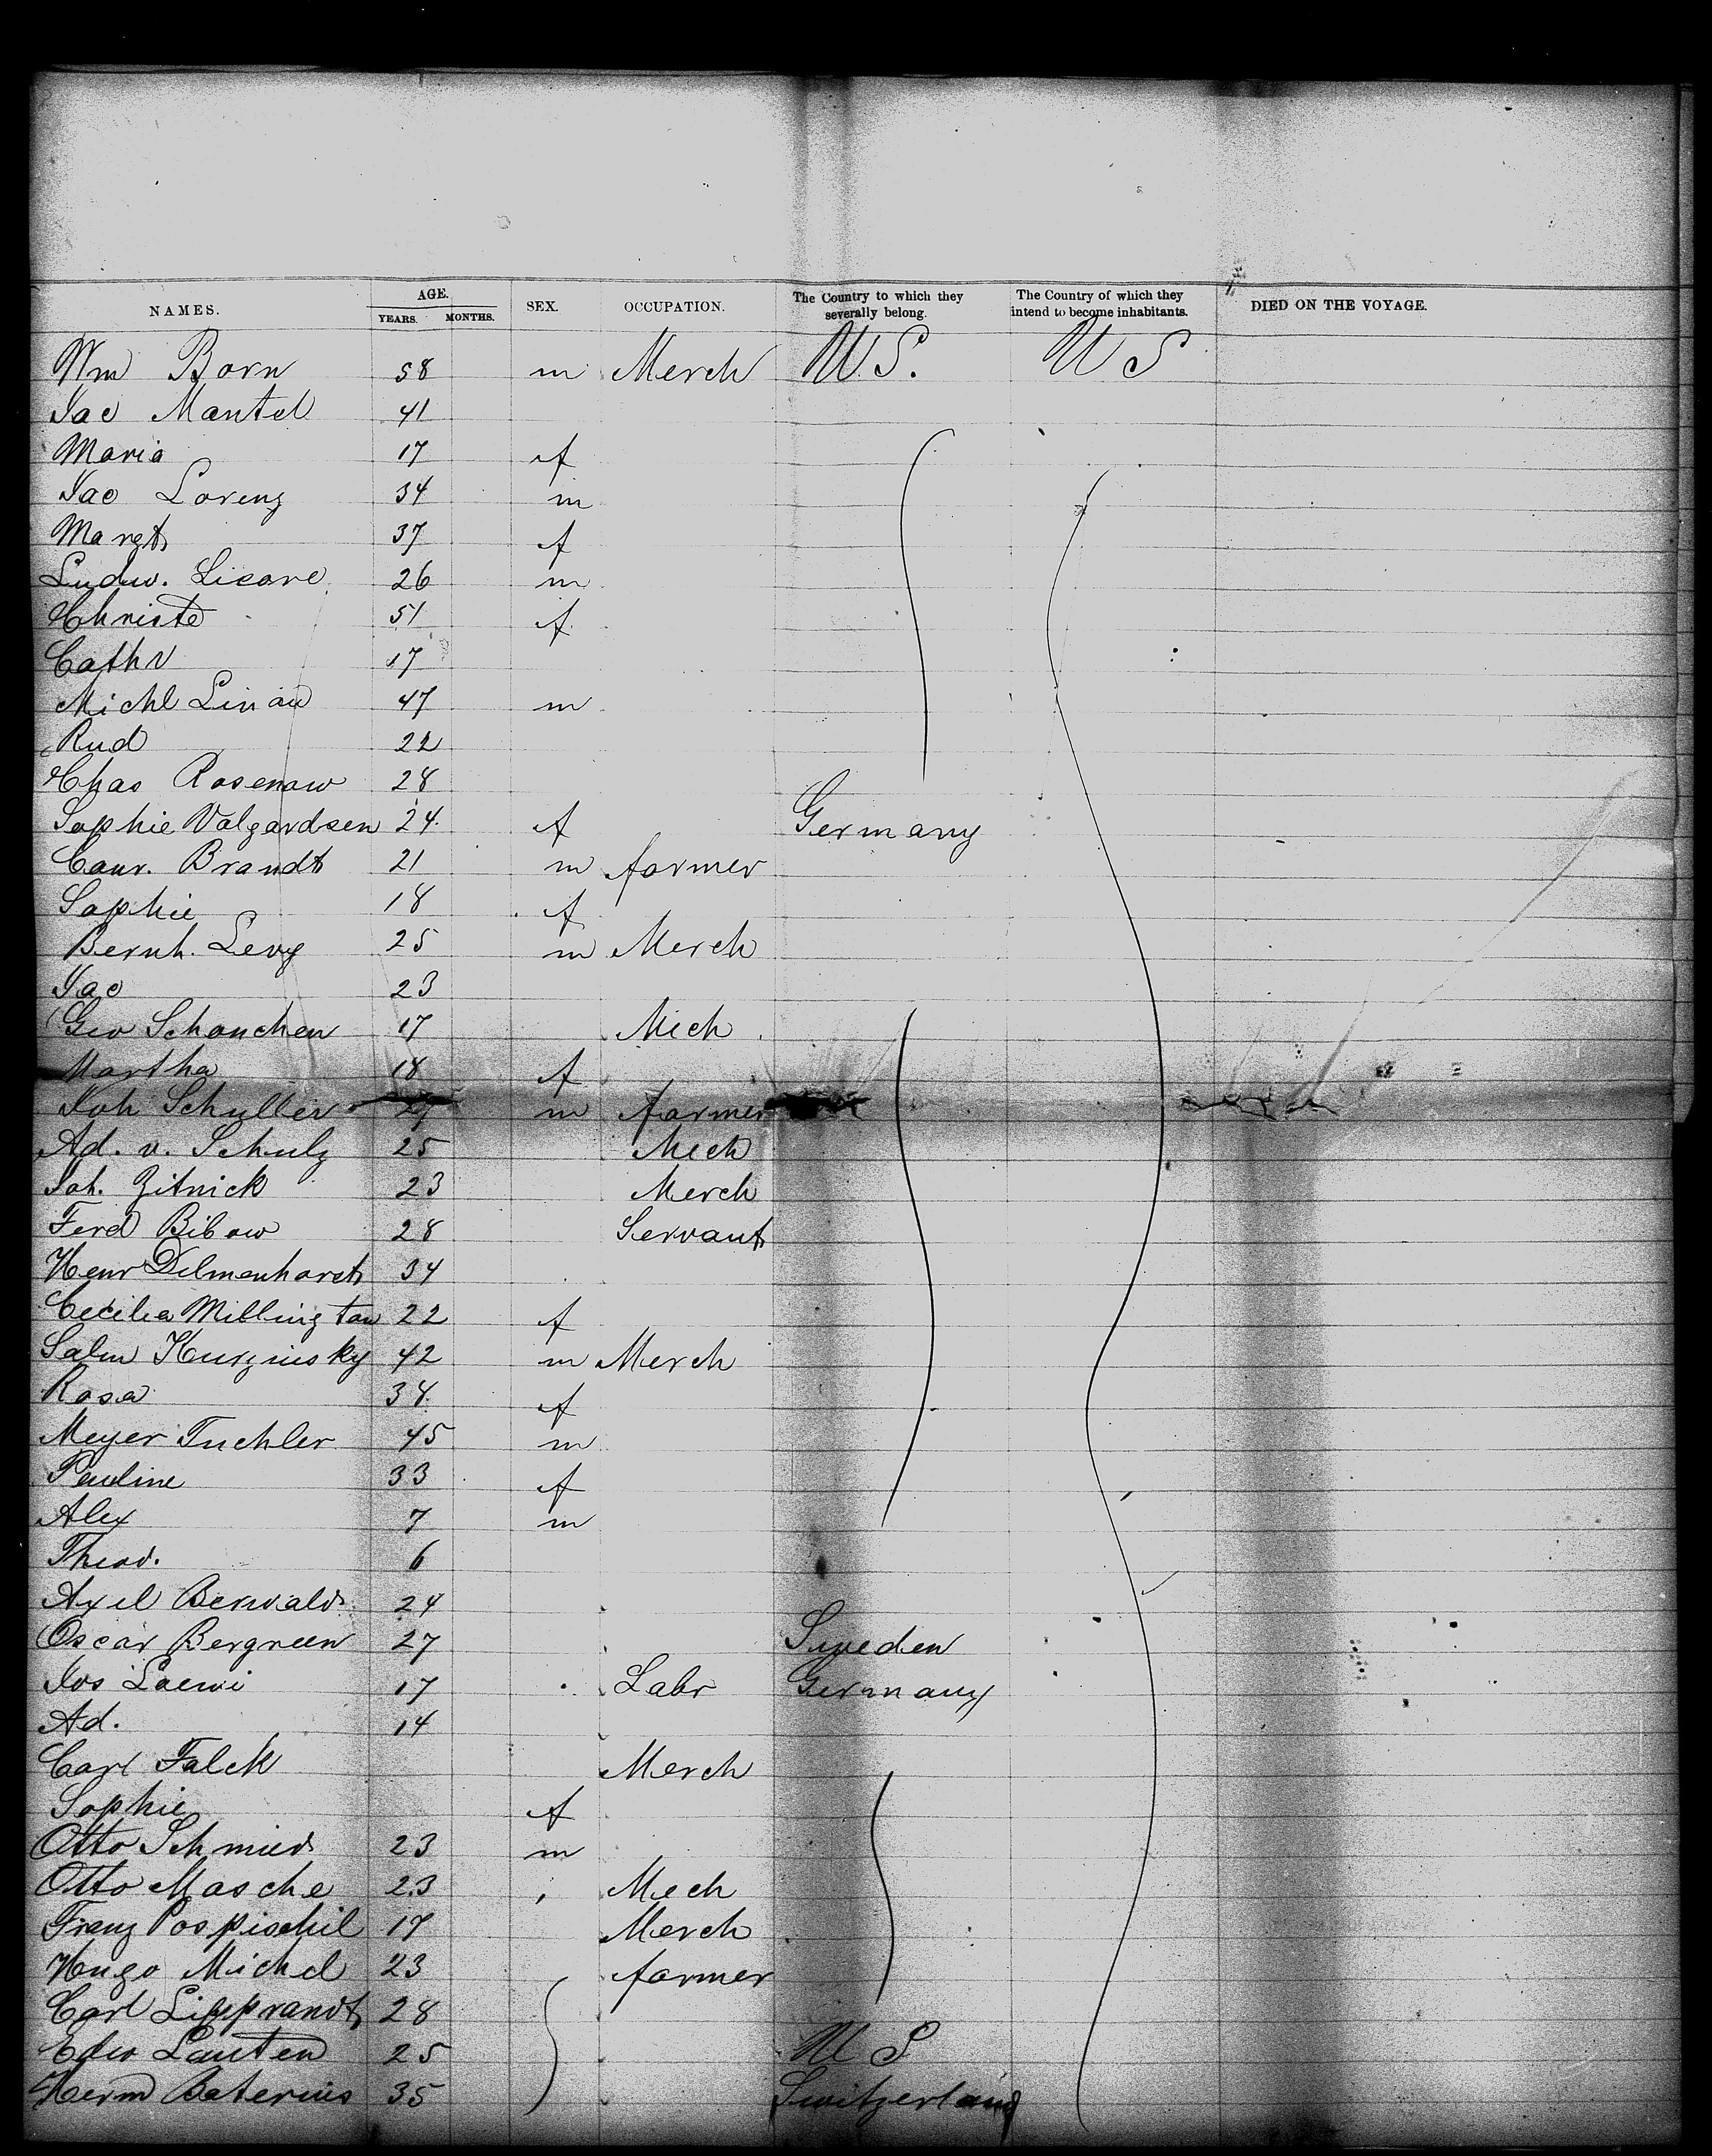 NAMES. AGE. YEARS. MONTHS. SEX. OCCUPATION. The Country to which they severally belong. The Country of which they intend to become inhabitants. DIED ON THE VOYAGE.
Wm Born 58 m Merch U.S. U S
Jac Mantel 41
Maria 17 f
Jac Lorenz 34 m
Margt 37 f
Ludw. Licare 26 m
Christe 51 f
Cathr 17
Michl Linau 47 m
Rud 22
Chas Rosenow 28
Sophie Volgardsen 24 f Germany
Conr. Brandt 21 m farmer
Sophie 18 f
Bernh. Levy 25 m Merch
Jac 23
Geo Schonchen 17 Mech
Martha 18 f
Joh Schuller 27 m farmer
Ad. v. Schulz 25 Mech
Joh. Zitnick 23 Merch
Ferd Bibow 28 Servant
Henr Delmenhorst 34
Cecilia Millington 22 f
Salm Kurzinsky 42 m Merch
Rosa 38 f
Meyer Tuchler 45 m
Pauline 33 f
Alex 7 m
Theod. 6
Axel Berwald 24
Oscar Bergreen 27 Sweden
Jos Loewi 17 Labr Germany
Ad. 14
Carl Falck Merch
Sophie f
Otto Schmied 23 m
Otto Masche 23 Mech
Franz Pospischil 17 Merch
Hugo Michel 23 farmer
Carl Lipprandt 28
Edw Lauten 25 U S
Herm Baterius 35 Switzerland